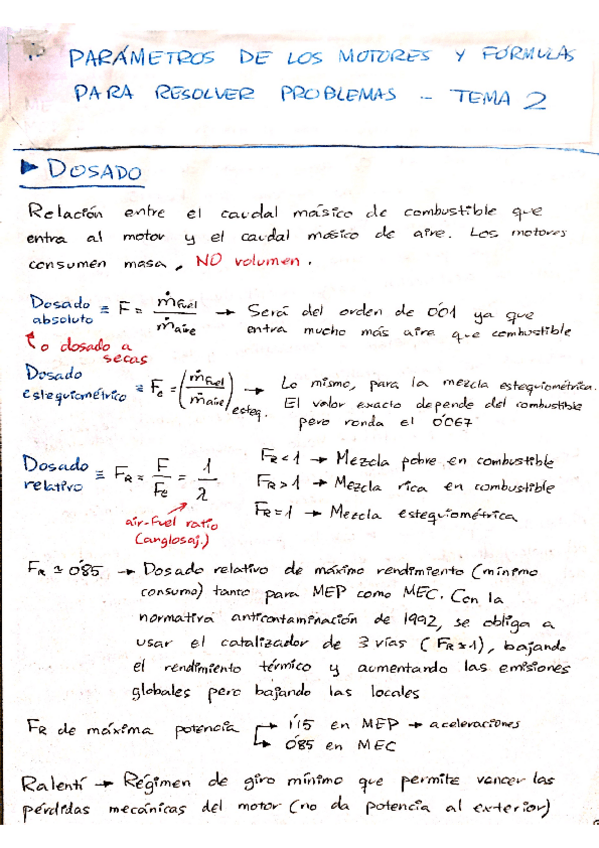 PARÁMETROS DE LOS MOTORES Y FÓRMULAS
PARA RESOLVER PROBLEMAS - TEMA 2
► DOSADO
Relación entre el caudal másico de combustible que
entra al motor y el caudal másico de aire. Los motores
consumen masa, NO volumen.
Dosado absoluto ≡ F = ṁfuel / ṁaire → Será del orden de 0'01 ya que
entra mucho más aire que combustible
o dosado a secas
Dosado estequiométrico ≡ Fe = (ṁfuel / ṁaire)esteq. → Lo mismo, para la mezcla estequiométrica.
El valor exacto depende del combustible
pero ronda el 0'067
Dosado relativo ≡ FR = F / Fe = 1 / λ
air-fuel ratio
(anglosaj.)
FR < 1 → Mezcla pobre en combustible
FR > 1 → Mezcla rica en combustible
FR = 1 → Mezcla estequiométrica
FR ≃ 0'85 → Dosado relativo de máximo rendimiento (mínimo
consumo) tanto para MEP como MEC. Con la
normativa anticontaminación de 1992, se obliga a
usar el catalizador de 3 vías (FR ≃ 1), bajando
el rendimiento térmico y aumentando las emisiones
globales pero bajando las locales
FR de máxima potencia → 1'15 en MEP → aceleraciones
→ 0'85 en MEC
Ralentí → Régimen de giro mínimo que permite vencer las
pérdidas mecánicas del motor (no da potencia al exterior)